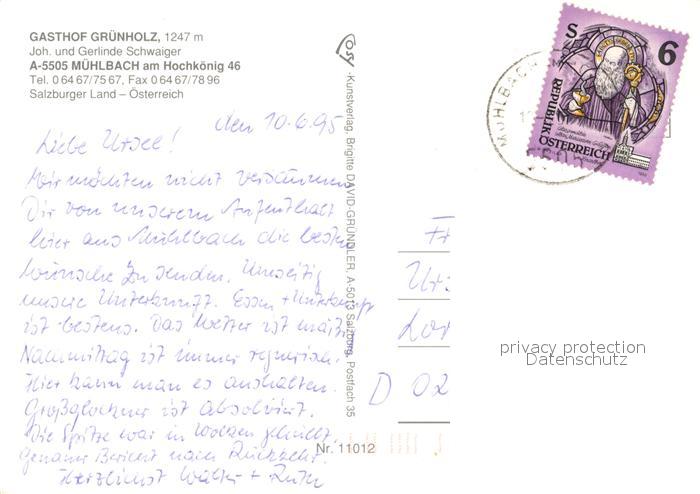 GASTHOF GRÜNHOLZ, 1247 m
Joh. und Gerlinde Schwaiger
A-5505 MÜHLBACH am Hochkönig 46
Tel. 0 64 67/75 67, Fax 0 64 67/78 96
Salzburger Land – Österreich
den 10.6.95
Liebe Ursel!
Wir möchten nicht versäumen
Dir von unserem Aufenthalt
hier aus Mühlbach die besten
Wünsche zu senden. Umseitig
unsere Unterkunft. Essen + Unterkunft
ist bestens. Das Wetter ist
Nachmittag ist immer regnerisch.
Hier kann man es aushalten.
Großglockner ist absolviert.
Die Spitze war in Wolken gehüllt.
Genauer Bericht nach Rückkehr.
Herzlichst Walter + Ruth
Kunstverlag, Brigitte DAVID-GRÜNDLER, A-5013 Salzburg, Postfach 35
Nr. 11012
MÜHLBACH
S 6
REPUBLIK
ÖSTERREICH
Fr
Ur
D 02
privacy protection
Datenschutz